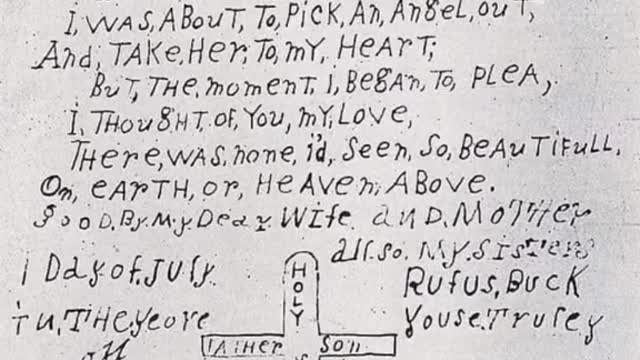 I, WAS, ABOUT, To, PICK, An, AngeL, ouT,
And, TAKE, Her, To, my, HeArT;
BuT, THe, momenT, I, BegAn, To, PLeA,
I, THougHT, of, You, my, Love,
THere, WAS, none, i'd, Seen, So, BeAuTifuLL,
On, eArTH, or, HeAven, Above.
gooD, By, My, DeAr, Wife, anD, MoTHer
all. so. My. SisTers
i DAy. of. July
HOLY
RufuS, Buck
Youse. Truley
Tu, THe, yeore
FATHer Son
of